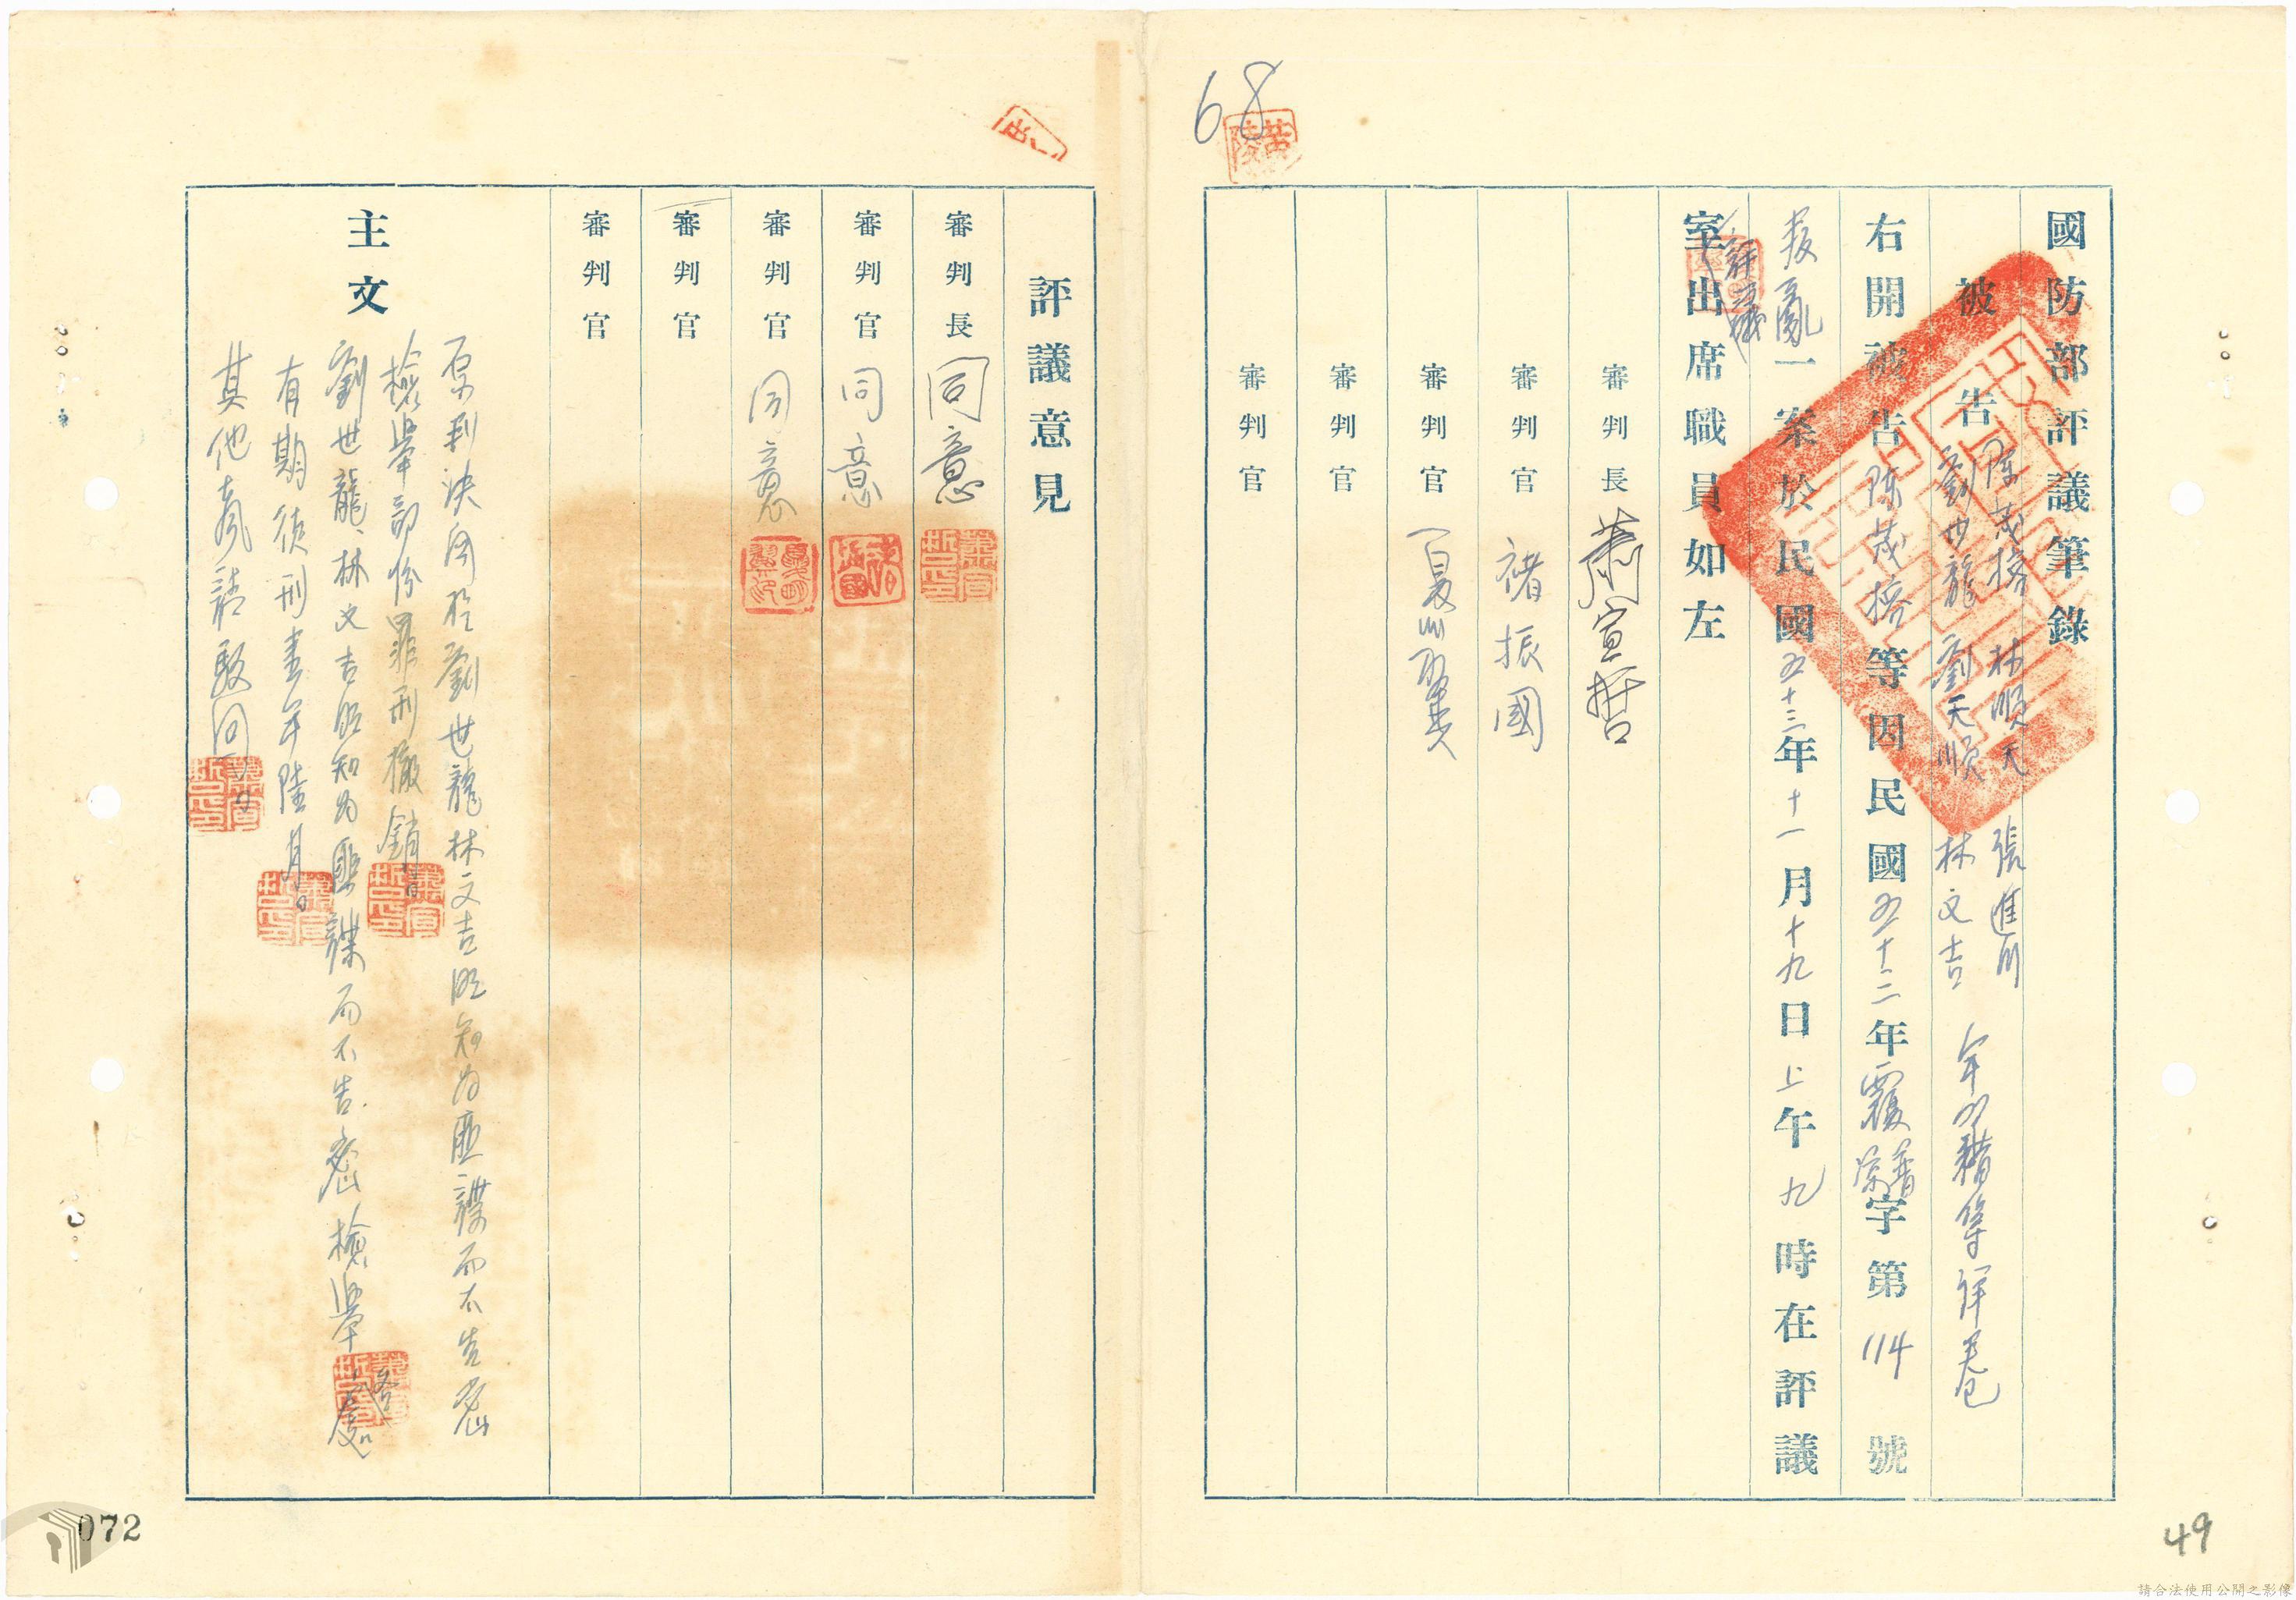 68
國防部評議筆錄
被告 陳茂榕 林順天 張進用
劉世龍 劉天順 林文吉 年籍等詳卷
右開被告陳茂榕等因民國五十二年覆普字第114號
叛亂一案於民國五十三年十一月十九日上午九時在評議
室出席職員如左
審判長 蕭宣哲
審判官 褚振國
審判官
審判官
審判官
49
評議意見
審判長 同意
審判官 同意
審判官 同意
審判官
審判官
主文
原判決關於劉世龍林文吉明知為匪諜而不告密
檢舉部份罪刑撤銷
劉世龍、林文吉明知為匪諜而不告密檢舉各處
有期徒刑壹年陸月
其他聲請駁回
072
請合法使用公開之影像